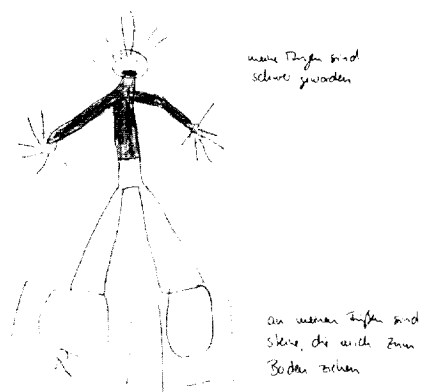 meine Augen sind
schwer geworden
an meinen Füßen sind
Steine, die mich zum
Boden ziehen